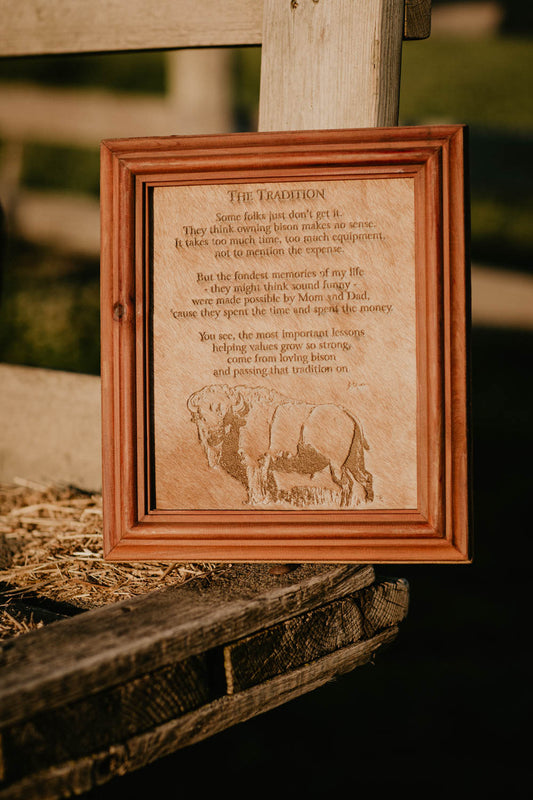 The Tradition
Some folks just don't get it.
They think owning bison makes no sense.
It takes too much time, too much equipment,
not to mention the expense.
But the fondest memories of my life
- they might think sound funny -
were made possible by Mom and Dad,
'cause they spent the time and spent the money.
You see, the most important lessons
helping values grow so strong,
come from loving bison
and passing that tradition on